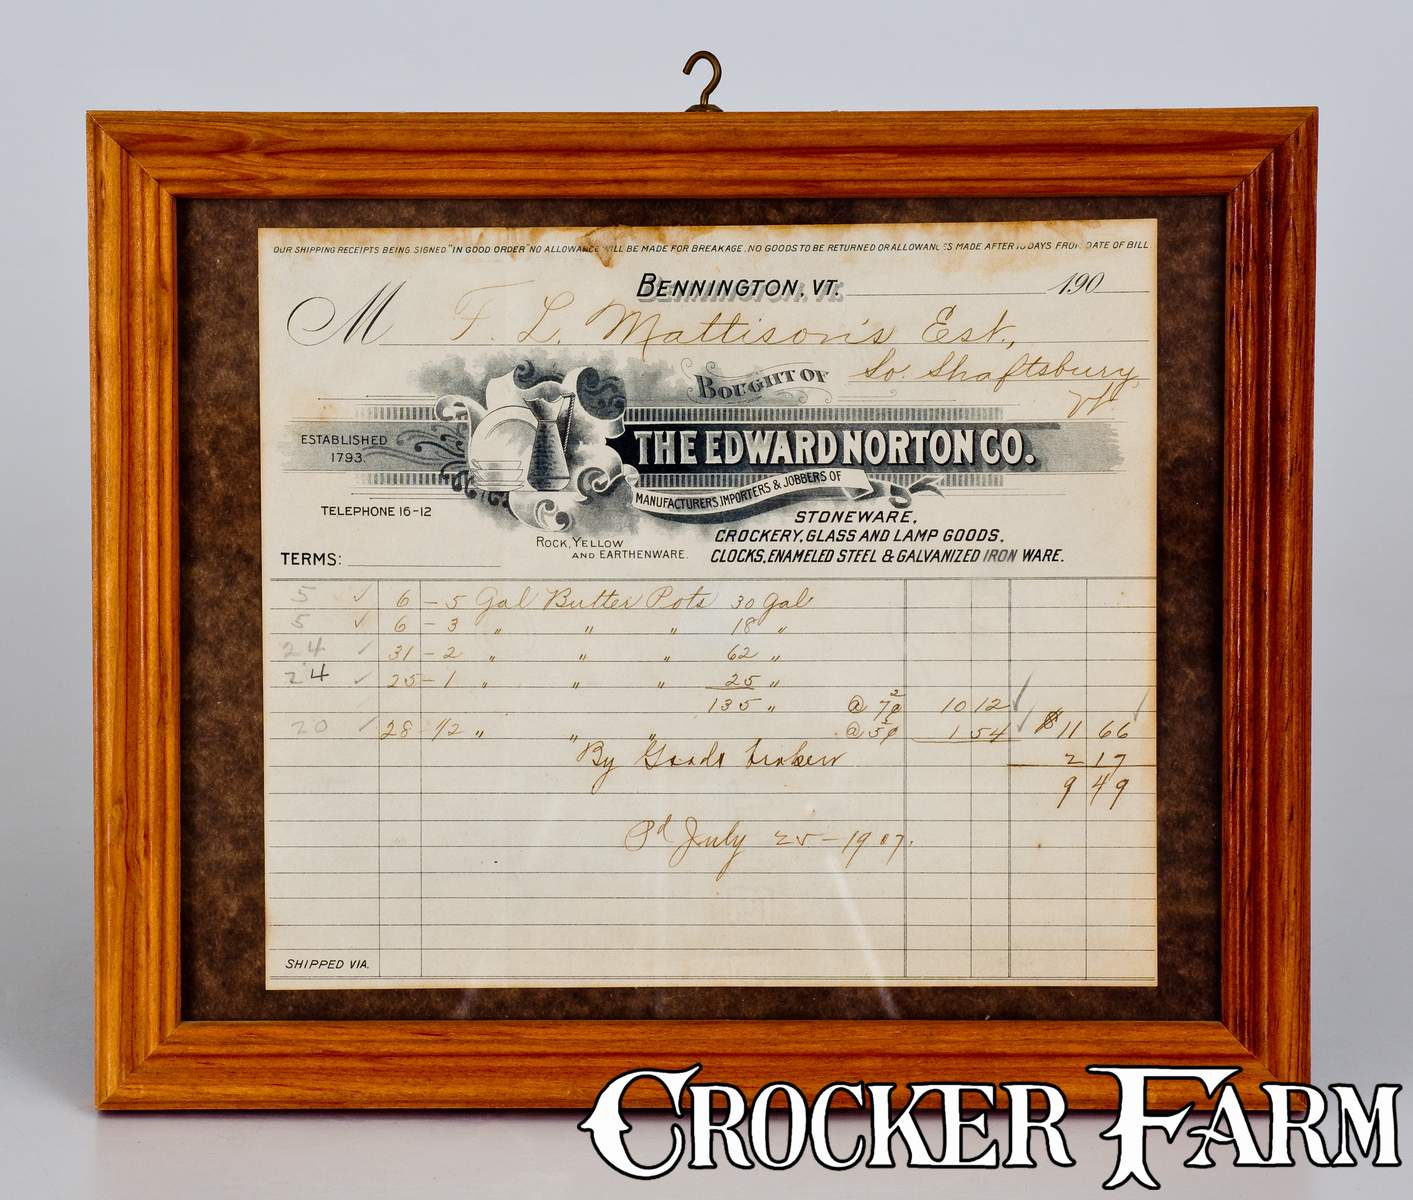 OUR SHIPPING RECEIPTS BEING SIGNED "IN GOOD ORDER" NO ALLOWANCE WILL BE MADE FOR BREAKAGE. NO GOODS TO BE RETURNED OR ALLOWANCES MADE AFTER 10 DAYS FROM DATE OF BILL
BENNINGTON, VT. 190
M F. L. Mattison's Est.,
BOUGHT OF So. Shaftsbury
Vt.
ESTABLISHED
1793.
THE EDWARD NORTON CO.
MANUFACTURERS, IMPORTERS & JOBBERS OF
TELEPHONE 16-12
STONEWARE,
CROCKERY, GLASS AND LAMP GOODS,
CLOCKS, ENAMELED STEEL & GALVANIZED IRON WARE.
ROCK, YELLOW
AND EARTHENWARE.
TERMS:
5 ✓ 6 - 5 Gal Butter Pots 30 Gal
5 ✓ 6 - 3 " " " 18 "
24 ✓ 31 - 2 " " " 62 "
24 ✓ 25 - 1 " " " 25 "
135 " @ 7½¢ 10 12 ✓
20 ✓ 28 1/2 " " " @ 5½¢ 1 54 ✓ $11 66
By Goods broken 2 17
9 49
Pd July 25 - 1907.
SHIPPED VIA.
CROCKER FARM